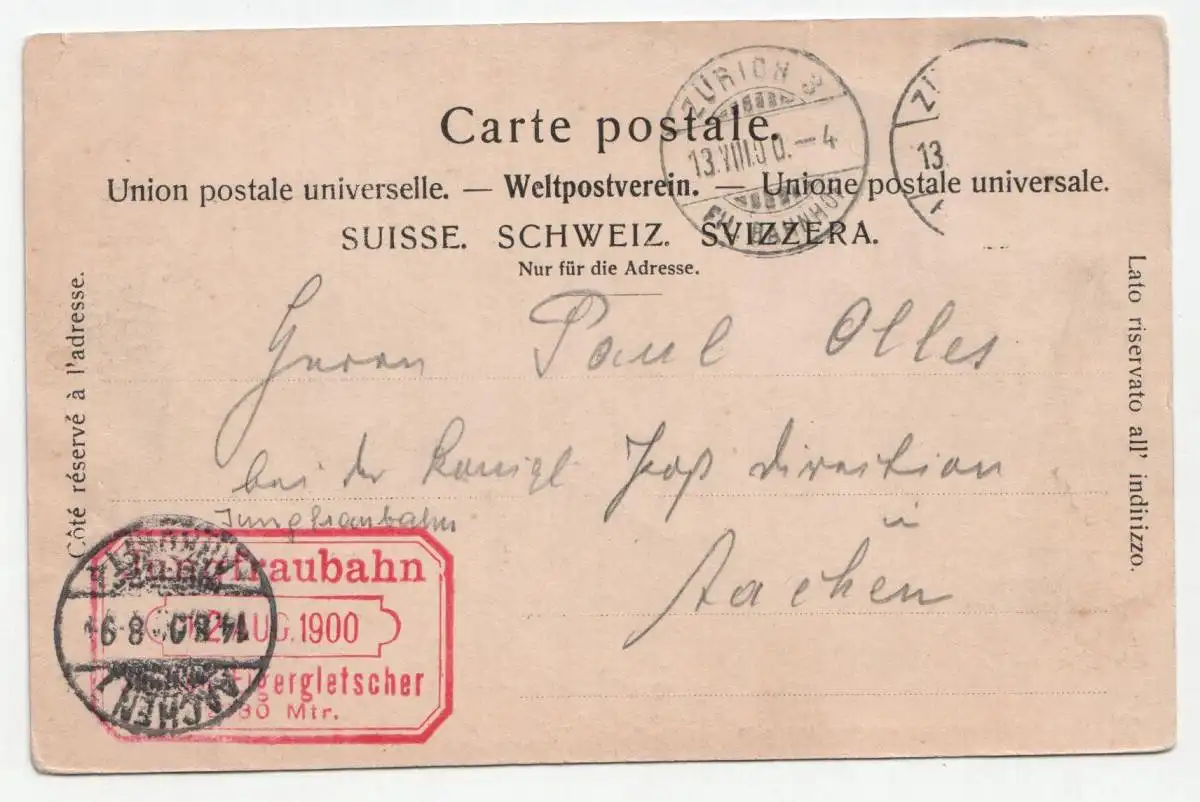 ZÜRICH 3
13.VIII.00.—4
FIL. BAHNHOF
13
Carte postale.
Union postale universelle. — Weltpostverein. — Unione postale universale.
SUISSE. SCHWEIZ. SVIZZERA.
Nur für die Adresse.
Côté réservé à l'adresse.
Lato riservato all' indirizzo.
Herrn Paul Olles
bei der Königl Post direction
in
Aachen
Jungfraubahn
Jungfraubahn
12 AUG. 1900
Eigergletscher
Mtr.
AACHEN 1
14.8.0 8-9